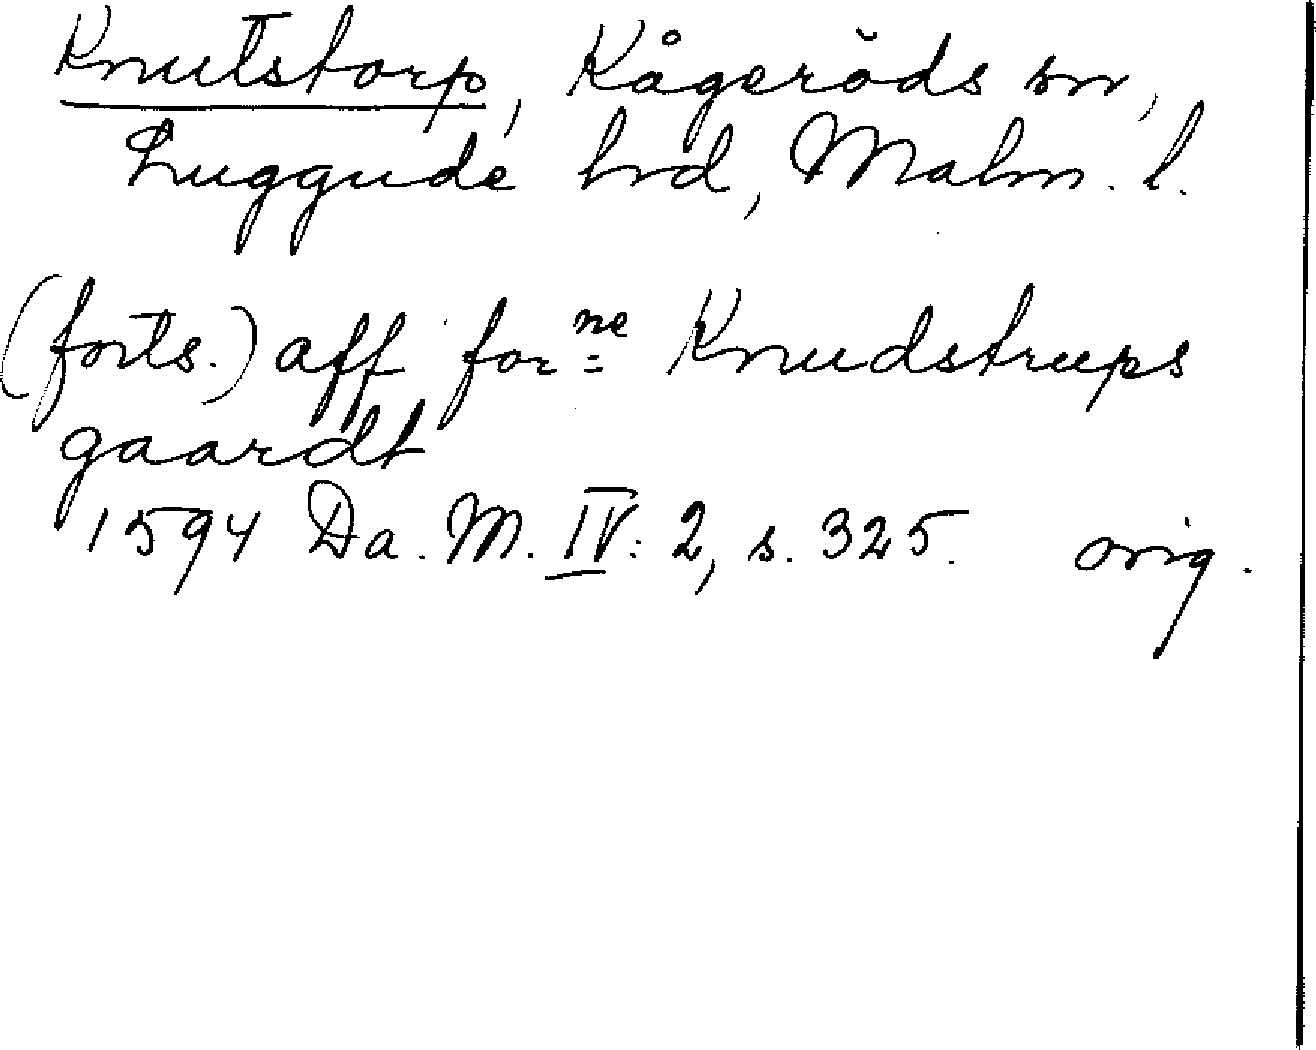 Knutstorp, Kågeröds sn,
Luggude hrd, Malm. l.
(forts.) aff for<sup>ne</sup> Knudstrups
gaardt
1594 Da. M. IV: 2, s. 325. orig.